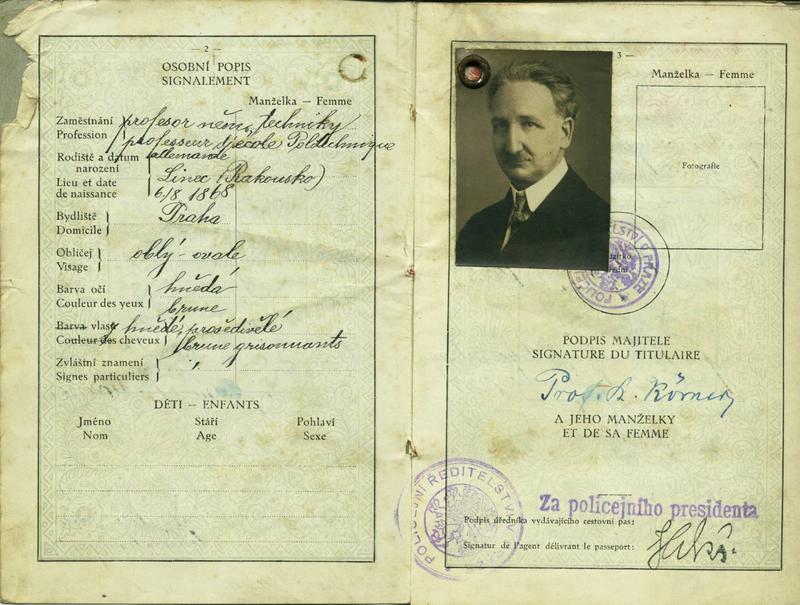 — 2 —
OSOBNÍ POPIS
SIGNALEMENT
Manželka — Femme
Zaměstnání
Profession
profesor něm. techniky
professeur d'école Politechnique
allemande
Rodiště a datum
narození
Lieu et date
de naissance
Linec (Rakousko)
6/8 1868
Bydliště
Domicile
Praha
Obličej
Visage
oblý - ovale
Barva očí
Couleur des yeux
hnědá
brune
Barva vlasy
Couleur des cheveux
hnědé, prošedivělé
brune grisonnants
Zvláštní znamení
Signes particuliers
DĚTI — ENFANTS
Jméno Stáří Pohlaví
Nom Age Sexe
3 —
Manželka — Femme
Fotografie
PODPIS MAJITELE
SIGNATURE DU TITULAIRE
Prof. Körner
A JEHO MANŽELKY
ET DE SA FEMME
POLICEJNÍ ŘEDITELSTVÍ V
Za policejního presidenta
Podpis úředníka vydávajícího cestovní pas:
Signatur de l'agent délivrant le passeport: